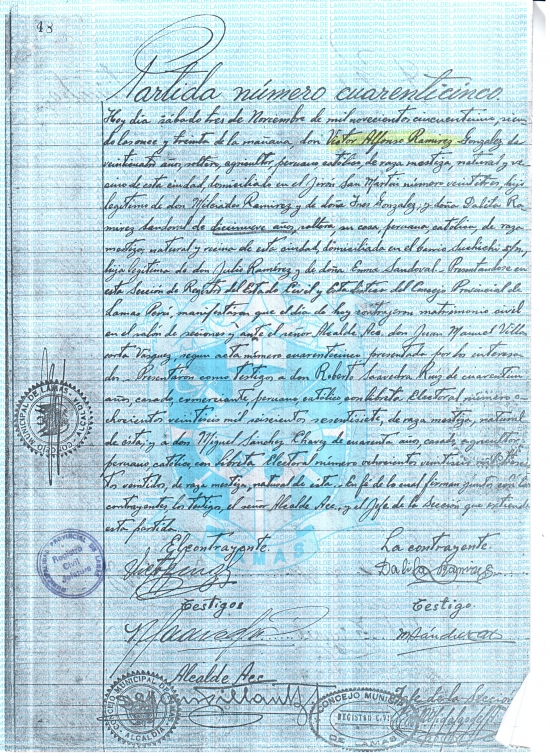 48
Partida número cuarenticinco.
Hoy dia sábado tres de Noviembre de mil novecientos cincuentiuno, sien
do las once y treinta de la mañana, don Victor Alfonso Ramirez Gonzalez de
veinticuatro años, soltero, agricultor, peruano, católico, de raza mestiza, natural y ve
cino de esta ciudad, domiciliado en el Jirón San Martin número veintitres, hijo
legitimo de don Milciades Ramirez y de doña Ines Gonzalez, y doña Dalila Ra
mirez Sandoval de diecinueve años, soltera, su casa, peruana, católica, de raza
mestiza, natural y vecina de esta ciudad, domiciliada en el barrio Suchiche s/n,
hija legitima de don Julio Ramirez y de doña Emma Sandoval.- Presentandose en
esta Sección de Registros del Estado Civil y Estadistica del Concejo Provincial de
Lamas Perú, manifestaron que el dia de hoy contrajeron matrimonio civil
en el salón de sesiones y ante el señor Alcalde Acc. don Juan Manuel Villa
corta Vasquez, segun acta número cuarenticinco presentada por los interesa
dos.- Presentaron como testigos a don Roberto Saavedra Ruiz de cuarentiun
años, casado, comerciante, peruano, católico con libreta Electoral número
ochocientos veintiseis mil seiscientos sesentisiete, de raza mestiza, natural
de esta; y a don Miguel Sanchez Chavez de cuarenta años, casado, agricultor,
peruano, católico, con libreta Electoral número ochocientos veintiseis mil
tos ventidos, de raza mestiza, natural de esta.- En fe de lo cual firman junto con los
contrayentes, los testigos, el señor Alcalde Acc., y el Jefe de la Sección que extiende
esta partida.
El contrayente. La contrayente
Dalila Ramirez
Testigos Testigo
R Saavedra M Sánchez
Alcalde Acc. Jefe de la Sección
CONCEJO MUNICIPAL DE LAMAS
REGISTRO CIVIL
Registro
Civil
LAMAS
CONCEJO MUNICIPAL DE LAMAS
ALCALDIA
CONCEJO MUNICIPAL
REGISTRO CIVIL
DE LAMAS